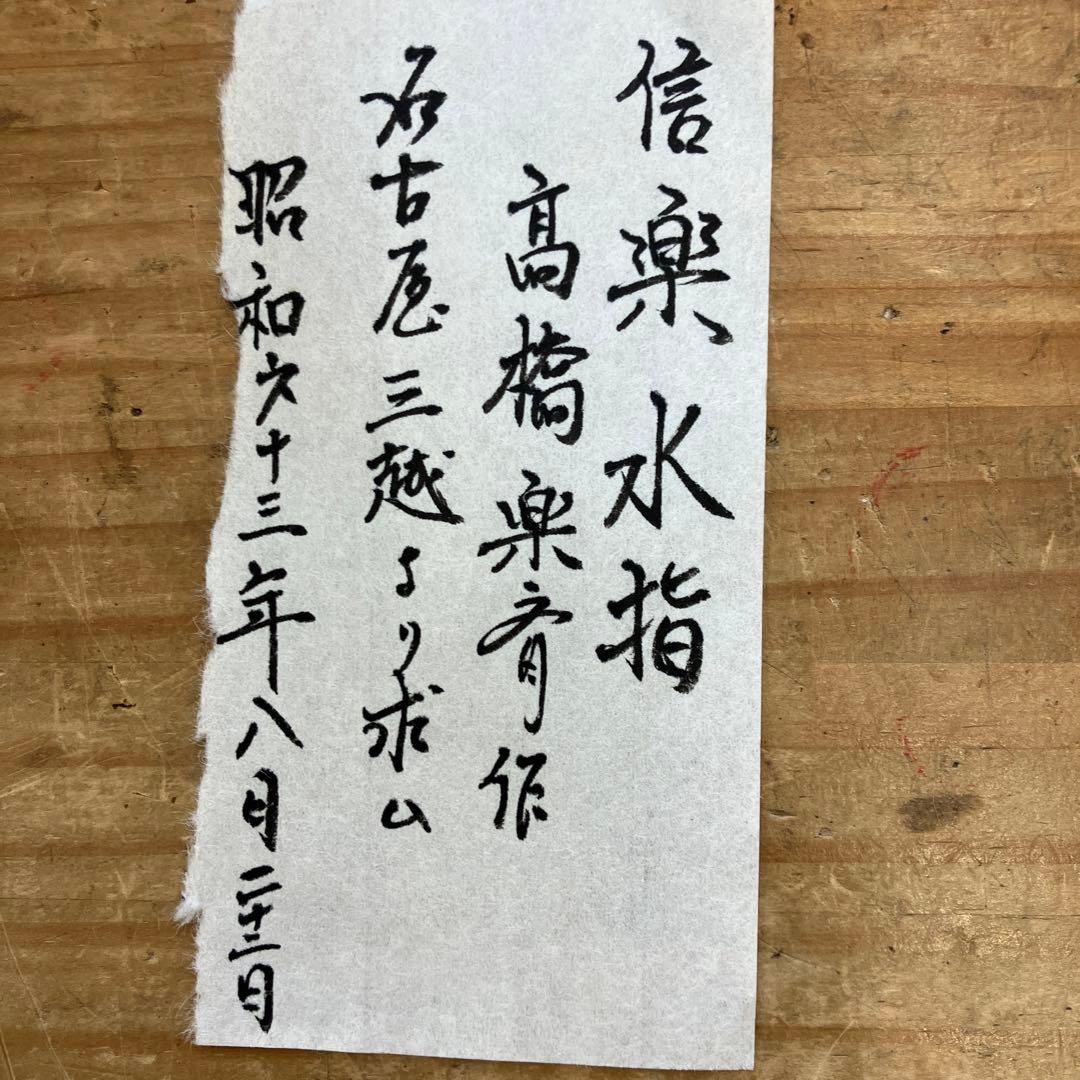 信楽水指
高橋楽斉作
名古屋三越より求ム
昭和六十三年八月二十二日